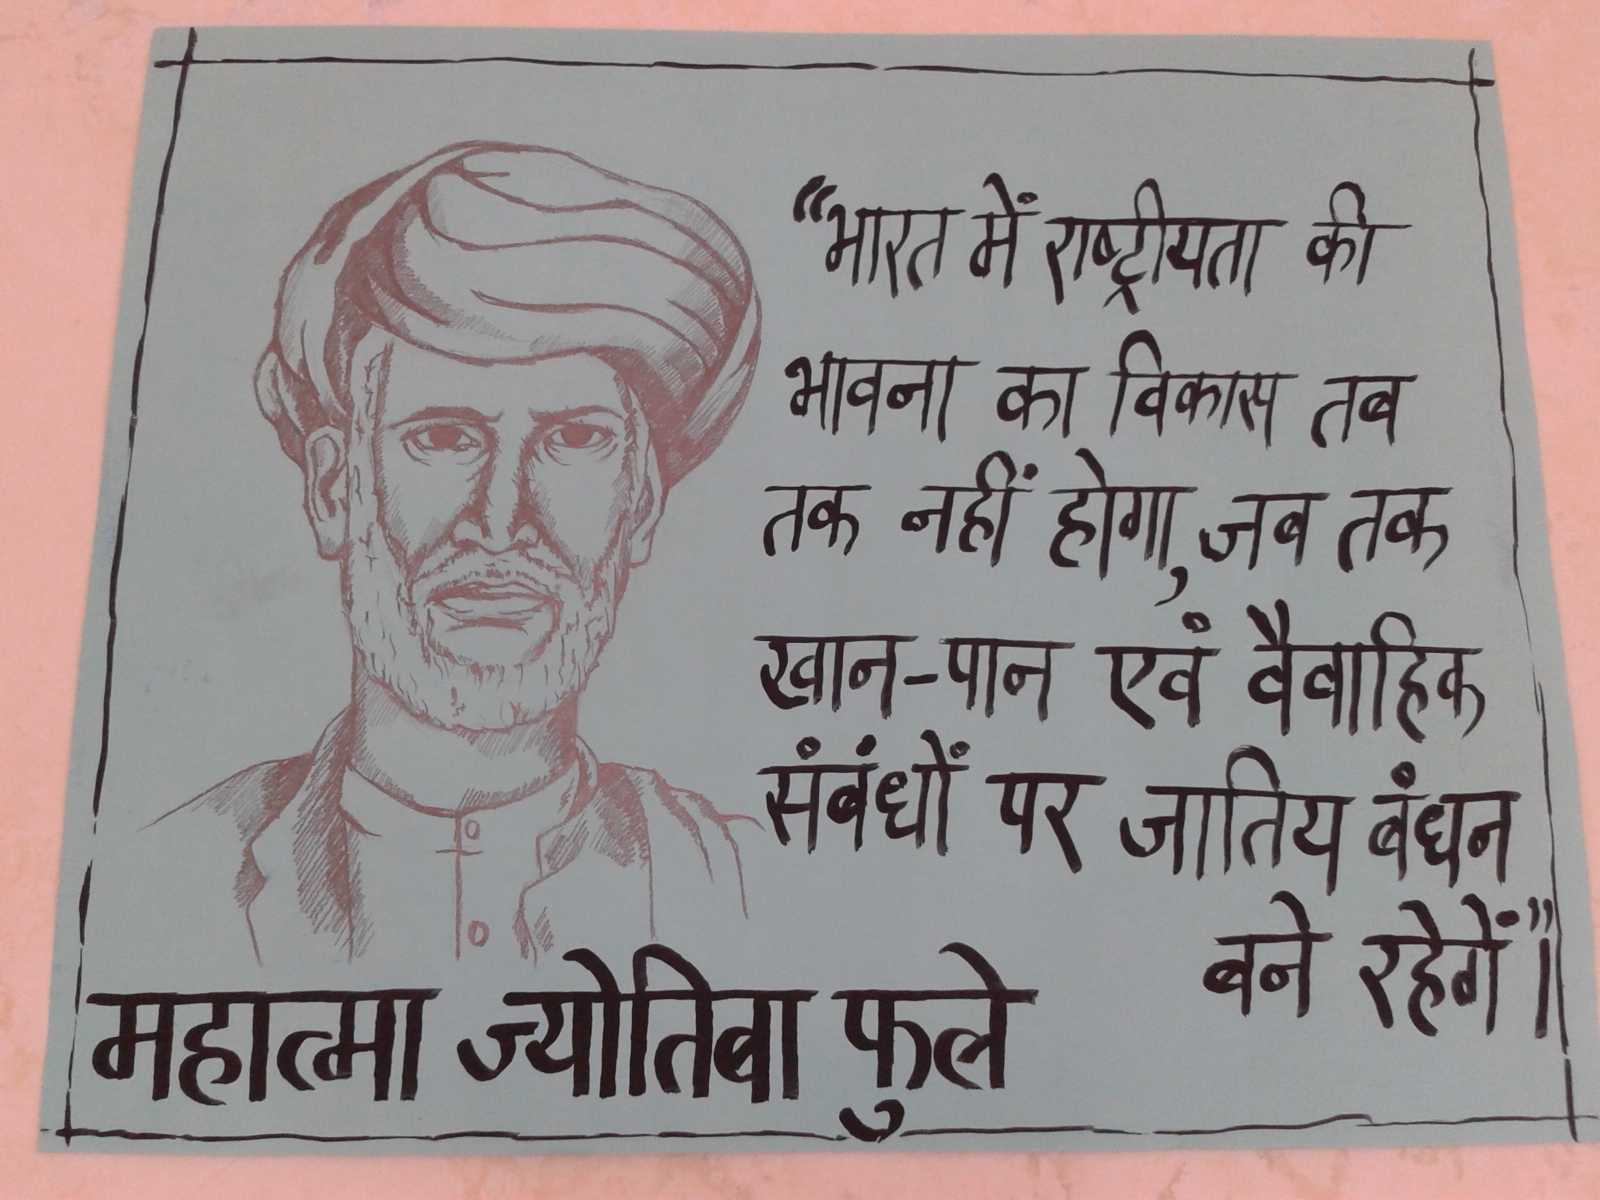 “भारत में राष्ट्रीयता की
भावना का विकास तब
तक नहीं होगा, जब तक
खान-पान एवं वैवाहिक
संबंधों पर जातिय बंधन
बने रहेगें”।
महात्मा ज्योतिबा फुले